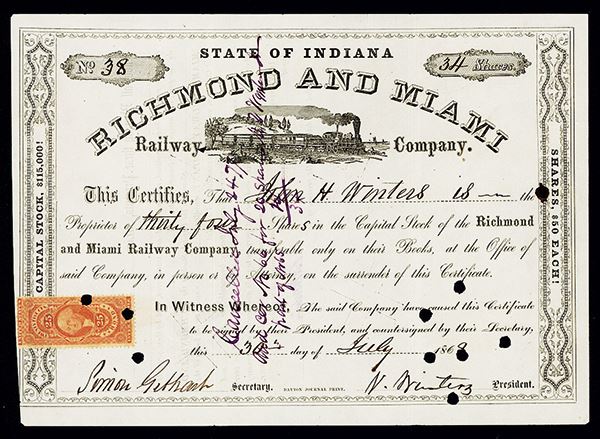 STATE OF INDIANA
No 38
34 Shares.
RICHMOND AND MIAMI
Railway Company.
CAPITAL STOCK, $115,000!
SHARES, $50 EACH!
This Certifies, That John H Winters is the
Proprietor of thirty four Shares in the Capital Stock of the Richmond
and Miami Railway Company, transferable only on their Books, at the Office of
said Company, in person or by Attorney, on the surrender of this Certificate.
In Witness Whereof, The said Company have caused this Certificate
to be signed by their President, and countersigned by their Secretary,
this 30 day of July 186
Simon Gebhart Secretary. DAYTON JOURNAL PRINT. V. Winters President.
25 25
Cancelled